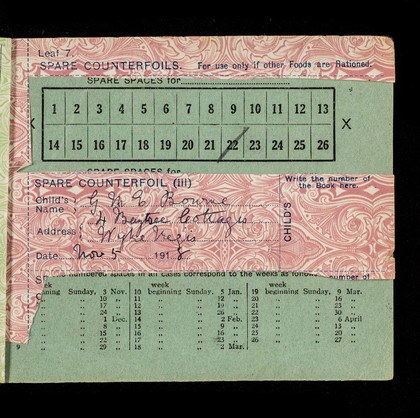 Leaf 7.
SPARE COUNTERFOILS. For use only if other Foods are Rationed.
SPARE SPACES for
1 2 3 4 5 6 7 8 9 10 11 12 13
X
14 15 16 17 18 19 20 21 22 23 24 25 26
SPARE SPACES for
SPARE COUNTERFOIL (iii) Write the number of the Book here.
Child's Name
Bourne
Address 4 Cottages
Wyke Regis
CHILD'S
Date Nov 5 1918
numbered spaces in all cases correspond to the weeks as follows number of
week beginning Sunday, 3 Nov. 10 beginning Sunday, 5 Jan. 19 beginning Sunday, 9 Mar.
10 11 12 20 16
17 12 19 21 23
24 13 26 22 30
1 Dec. 14 2 Feb. 23 6 April
8 15 9 24 13
15 16 16 25 20
22 17 23 26 27
9 29 18 2 Mar.